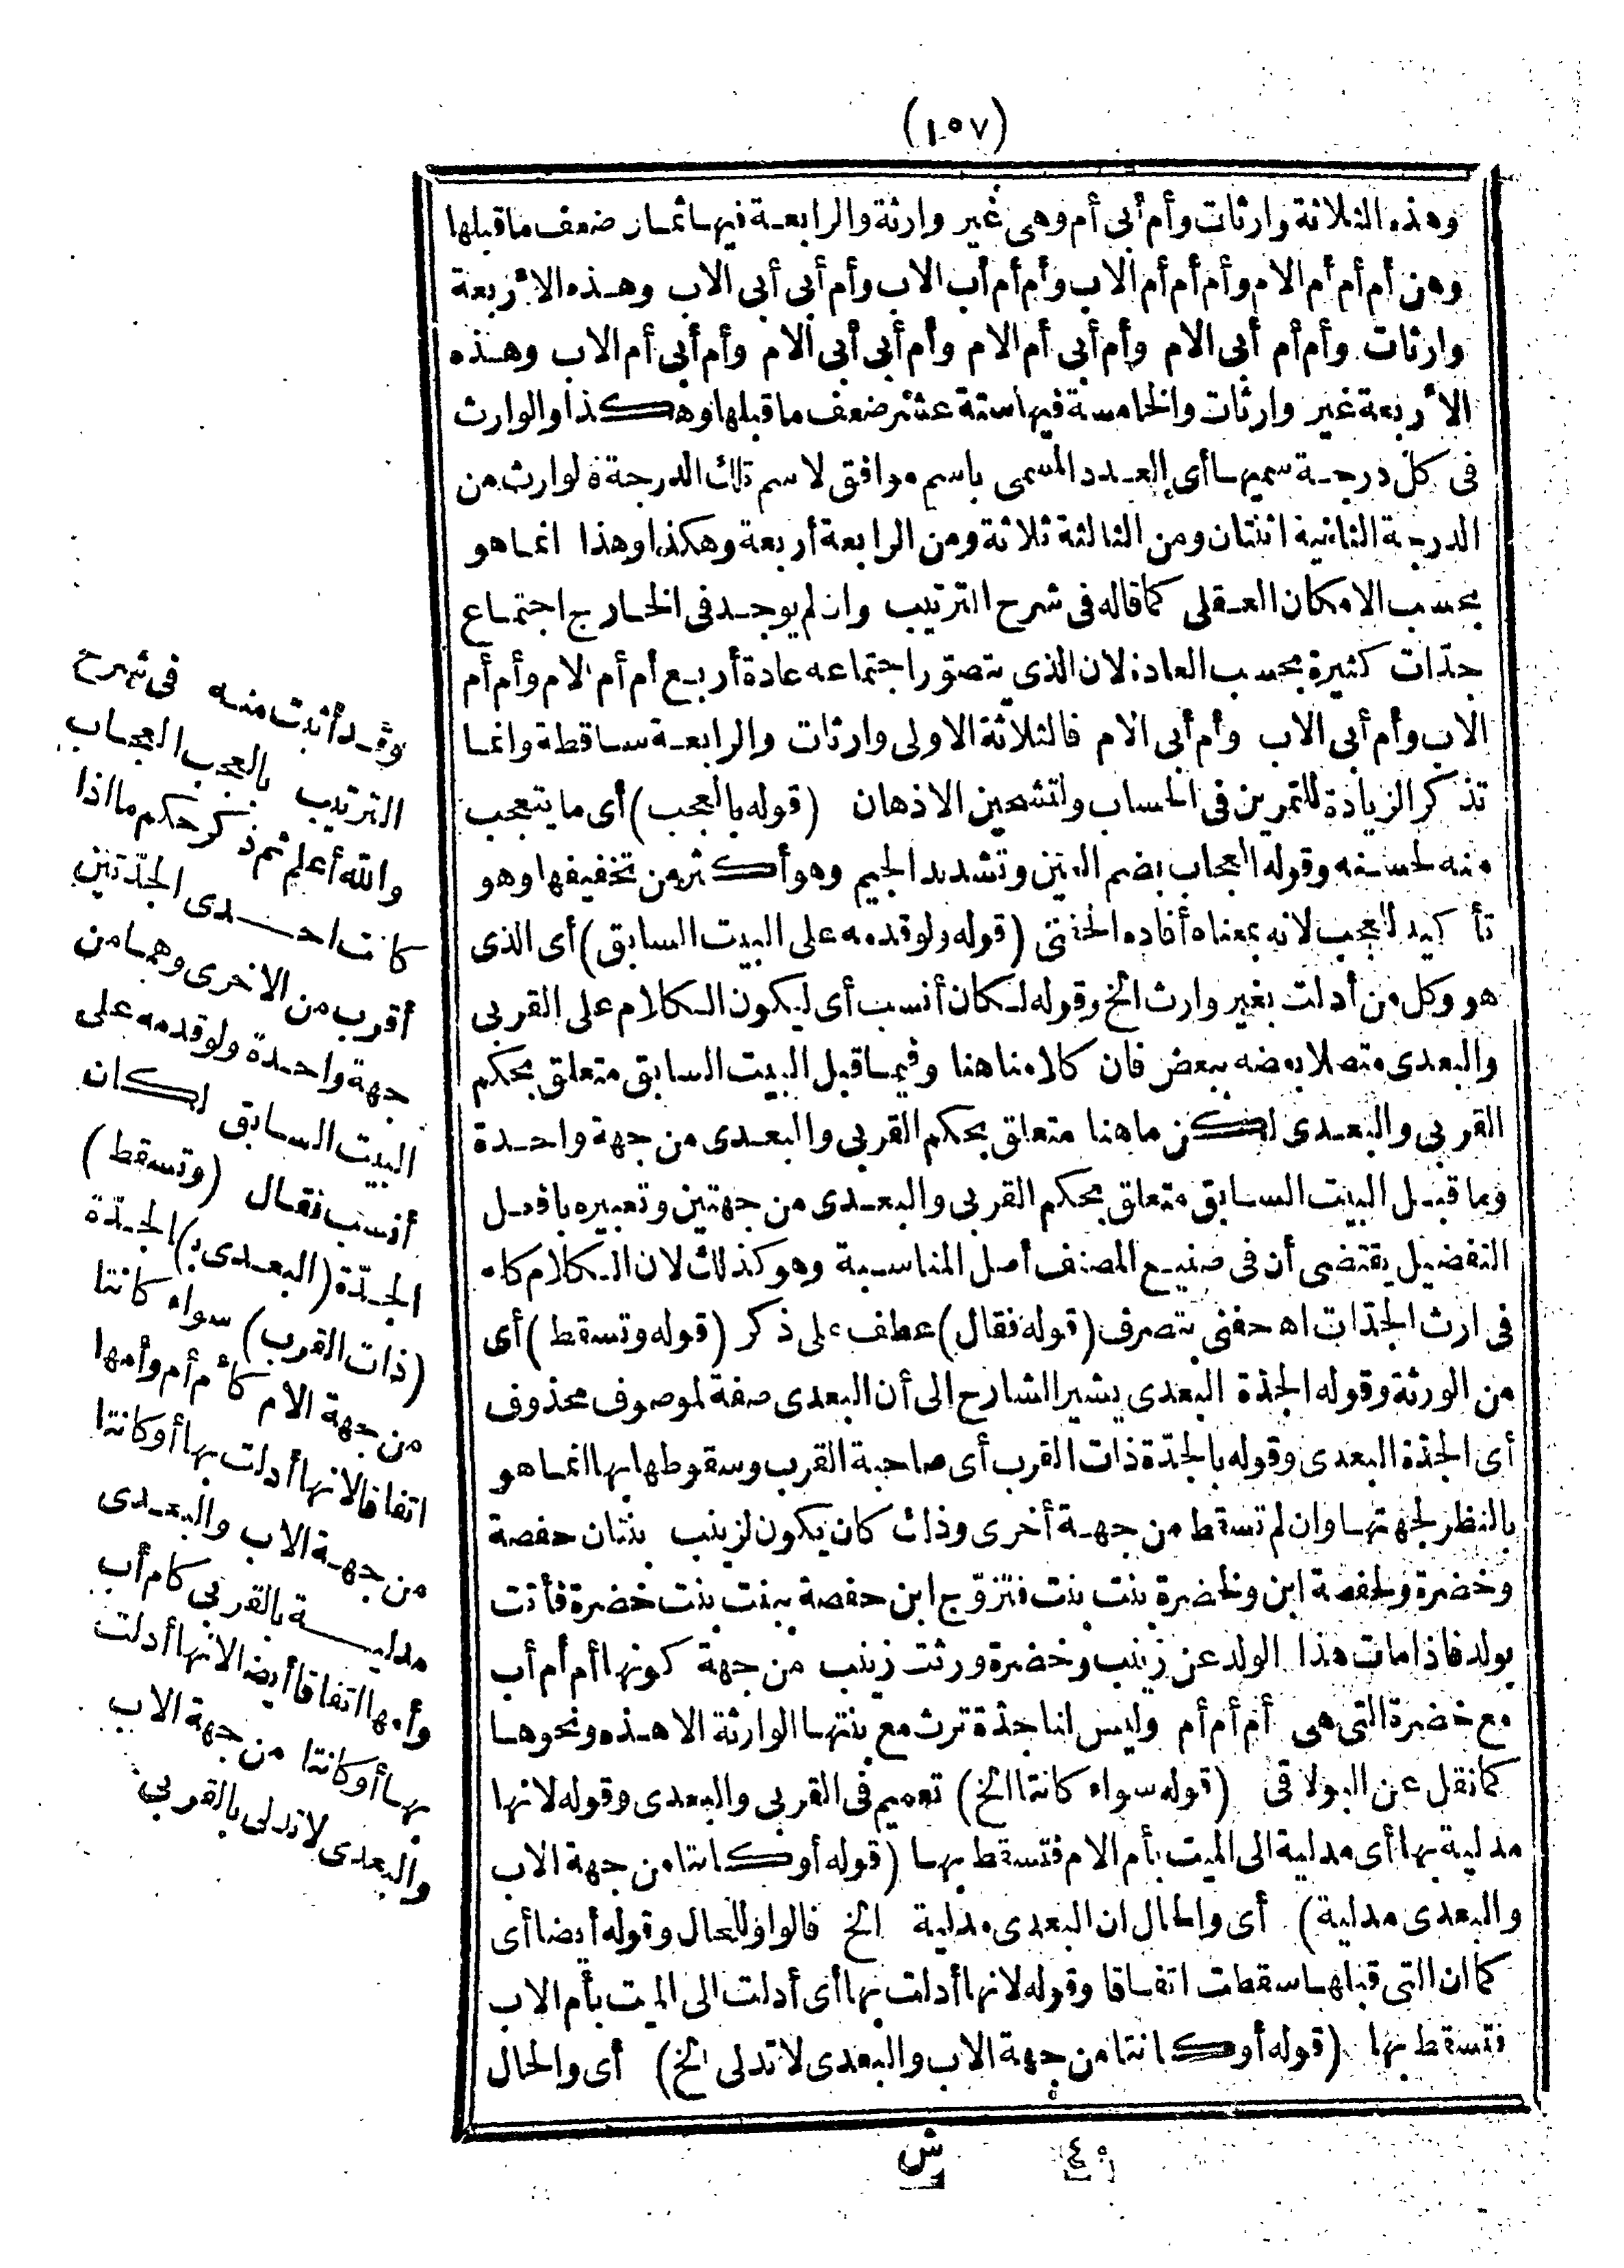 (١٥٧)
وهذه الثلاثة وارثات وأم أبى أم وهى غير وارثة والرابعة فيها ثمان ضعف ما قبلها
وهن أم أم أم الام وأم أم أم الاب وأم أم أب الاب وأم أبى أبى الاب وهذه الأربعة
وارثات وأم أم أبى الام وأم أبى أم الام وأم أبى أبى الام وأم أبى أم الاب وهذه
الأربعة غير وارثات والخامسة فيها ستة عشر ضعف ما قبلها وهكذا والوارث
فى كل درجة سميها أى العدد المسمى باسم موافق لاسم تلك الدرجة فالوارث من
الدرجة الثانية اثنتان ومن الثالثة ثلاثة ومن الرابعة أربعة وهكذا وهذا انما هو
بحسب الامكان العقلى كما قاله فى شرح الترتيب وان لم يوجد فى الخارج اجتماع
جدّات كثيرة بحسب العادة لان الذى يتصوّر اجتماعه عادة أربع أم أم الام وأم أم
الاب وأم أبى الاب وأم أبى الام فالثلاثة الاولى وارثات والرابعة ساقطة وانما
تذكر الزيادة للتمرين فى الحساب ولتشحين الاذهان (قوله بالعجب) أى ما يتعجب
منه لحسنه وقوله العجاب بضم العين وتشديد الجيم وهو أكثر من تخفيفها وهو
تأكيد للعجب لانه بمعناه أفاده الحفنى (قوله ولو قدمه على البيت السابق) أى الذى
هو وكل من أدلت بغير وارث الخ وقوله لكان أنسب أى ليكون الكلام على القربى
والبعدى متصلا بعضه ببعض فان كلامنا هنا وفيما قبل البيت السابق متعلق بحكم
القربى والبعدى لكن ما هنا متعلق بحكم القربى والبعدى من جهة واحدة
وما قبل البيت السابق متعلق بحكم القربى والبعدى من جهتين وتعبيره بافعل
التفضيل يقتضى أن فى صنيع المصنف أصل المناسبة وهو كذلك لان الكلام كله
فى ارث الجدّات اه حفنى بتصرف (قوله فقال) عطف على ذكر (قوله وتسقط) أى
من الورثة وقوله الجدّة البعدى يشير الشارح الى أن البعدى صفة لموصوف محذوف
أى الجدّة البعدى وقوله بالجدّة ذات القرب أى صاحبة القرب وسقوطها بها انما هو
بالنظر لجهتها وان لم تسقط من جهة أخرى وذلك كان يكون لزينب بنتان حفصة
وخضرة ولحفصة ابن ولخضرة بنت بنت فتزوّج ابن حفصة بنت بنت خضرة فأتت
بولد فاذا مات هذا الولد عن زينب وخضرة ورثت زينب من جهة كونها أم أم أب
مع خضرة التى هى أم أم أم وليس لنا جدّة ترث مع بنتها الوارثة الا هذه ونحوها
كما نقل عن البولاقى (قوله سواء كانتا الخ) تعميم فى القربى والبعدى وقوله لانها
مدلية بها أى مدلية الى الميت بأم الام فتسقط بها (قوله أو كانتا من جهة الاب
والبعدى مدلية) أى والحال ان البعدى مدلية الخ فالواو للحال وقوله أيضا أى
كما ان التى قبلها سقطت اتفاقا وقوله لانها أدلت بها أى أدلت الى الميت بأم الاب
فتسقط بها (قوله أو كانتا من جهة الاب والبعدى لا تدلى الخ) أى والحال
وقد أتيت منه فى شرح
الترتيب بالعجب العجاب
والله أعلم ثم ذكر حكم ما اذا
كانت احدى الجدّتين
أقرب من الاخرى وهما من
جهة واحدة ولو قدمه على
البيت السابق لكان
أنسب فقال (وتسقط)
الجدّة (البعدى ب) الجدّة
(ذات القرب) سواء كانتا
من جهة الام كأم أم وأمها
اتفاقا لانها أدلت بها أو كانتا
من جهة الاب والبعدى
مدلية بالقربى كام أب
وأمها اتفاقا أيضا لانها أدلت
بها أو كانتا من جهة الاب
والبعدى لا تدلى بالقربى
٤٠ ش